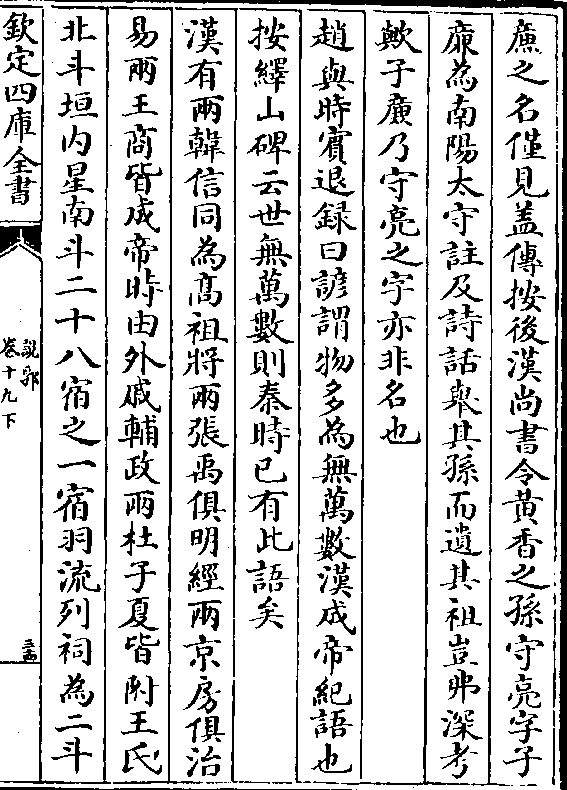 廉之名僅見盖傳按後漢尚書令黄香之孫守亮字子
廉為南陽太守註及詩話舉其孫而遺其祖豈弗深考
歟子廉乃守亮之字亦非名也
趙與時賓退録曰諺謂物多為無萬數漢成帝紀語也
按繹山碑云世無萬數則秦時已有此語矣
漢有兩韓信同為髙祖將兩張禹俱明經兩京房俱治
易兩王商皆成帝時由外戚輔政兩杜子夏皆附王氏
北斗垣内星南斗二十八宿之一宿羽流列祠為二斗
欽定四庫全書
說郛
卷十九下